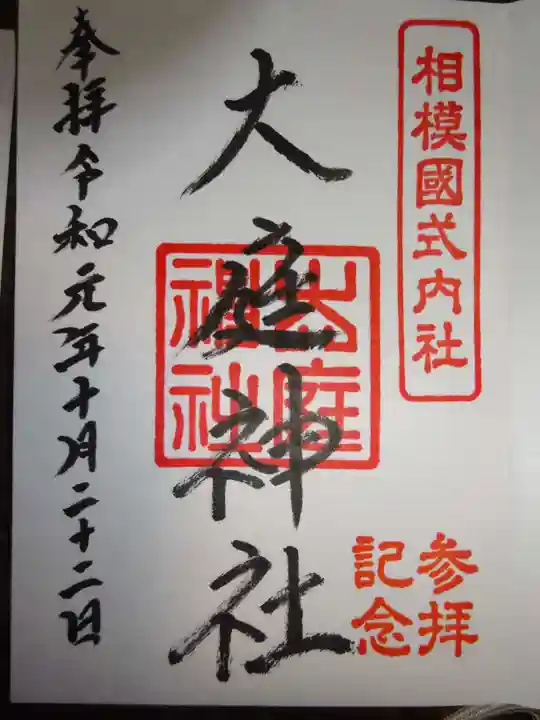 相模國式内社
参拝
記念
大庭神社
大庭
神社
奉拝令和元年十月二十二日